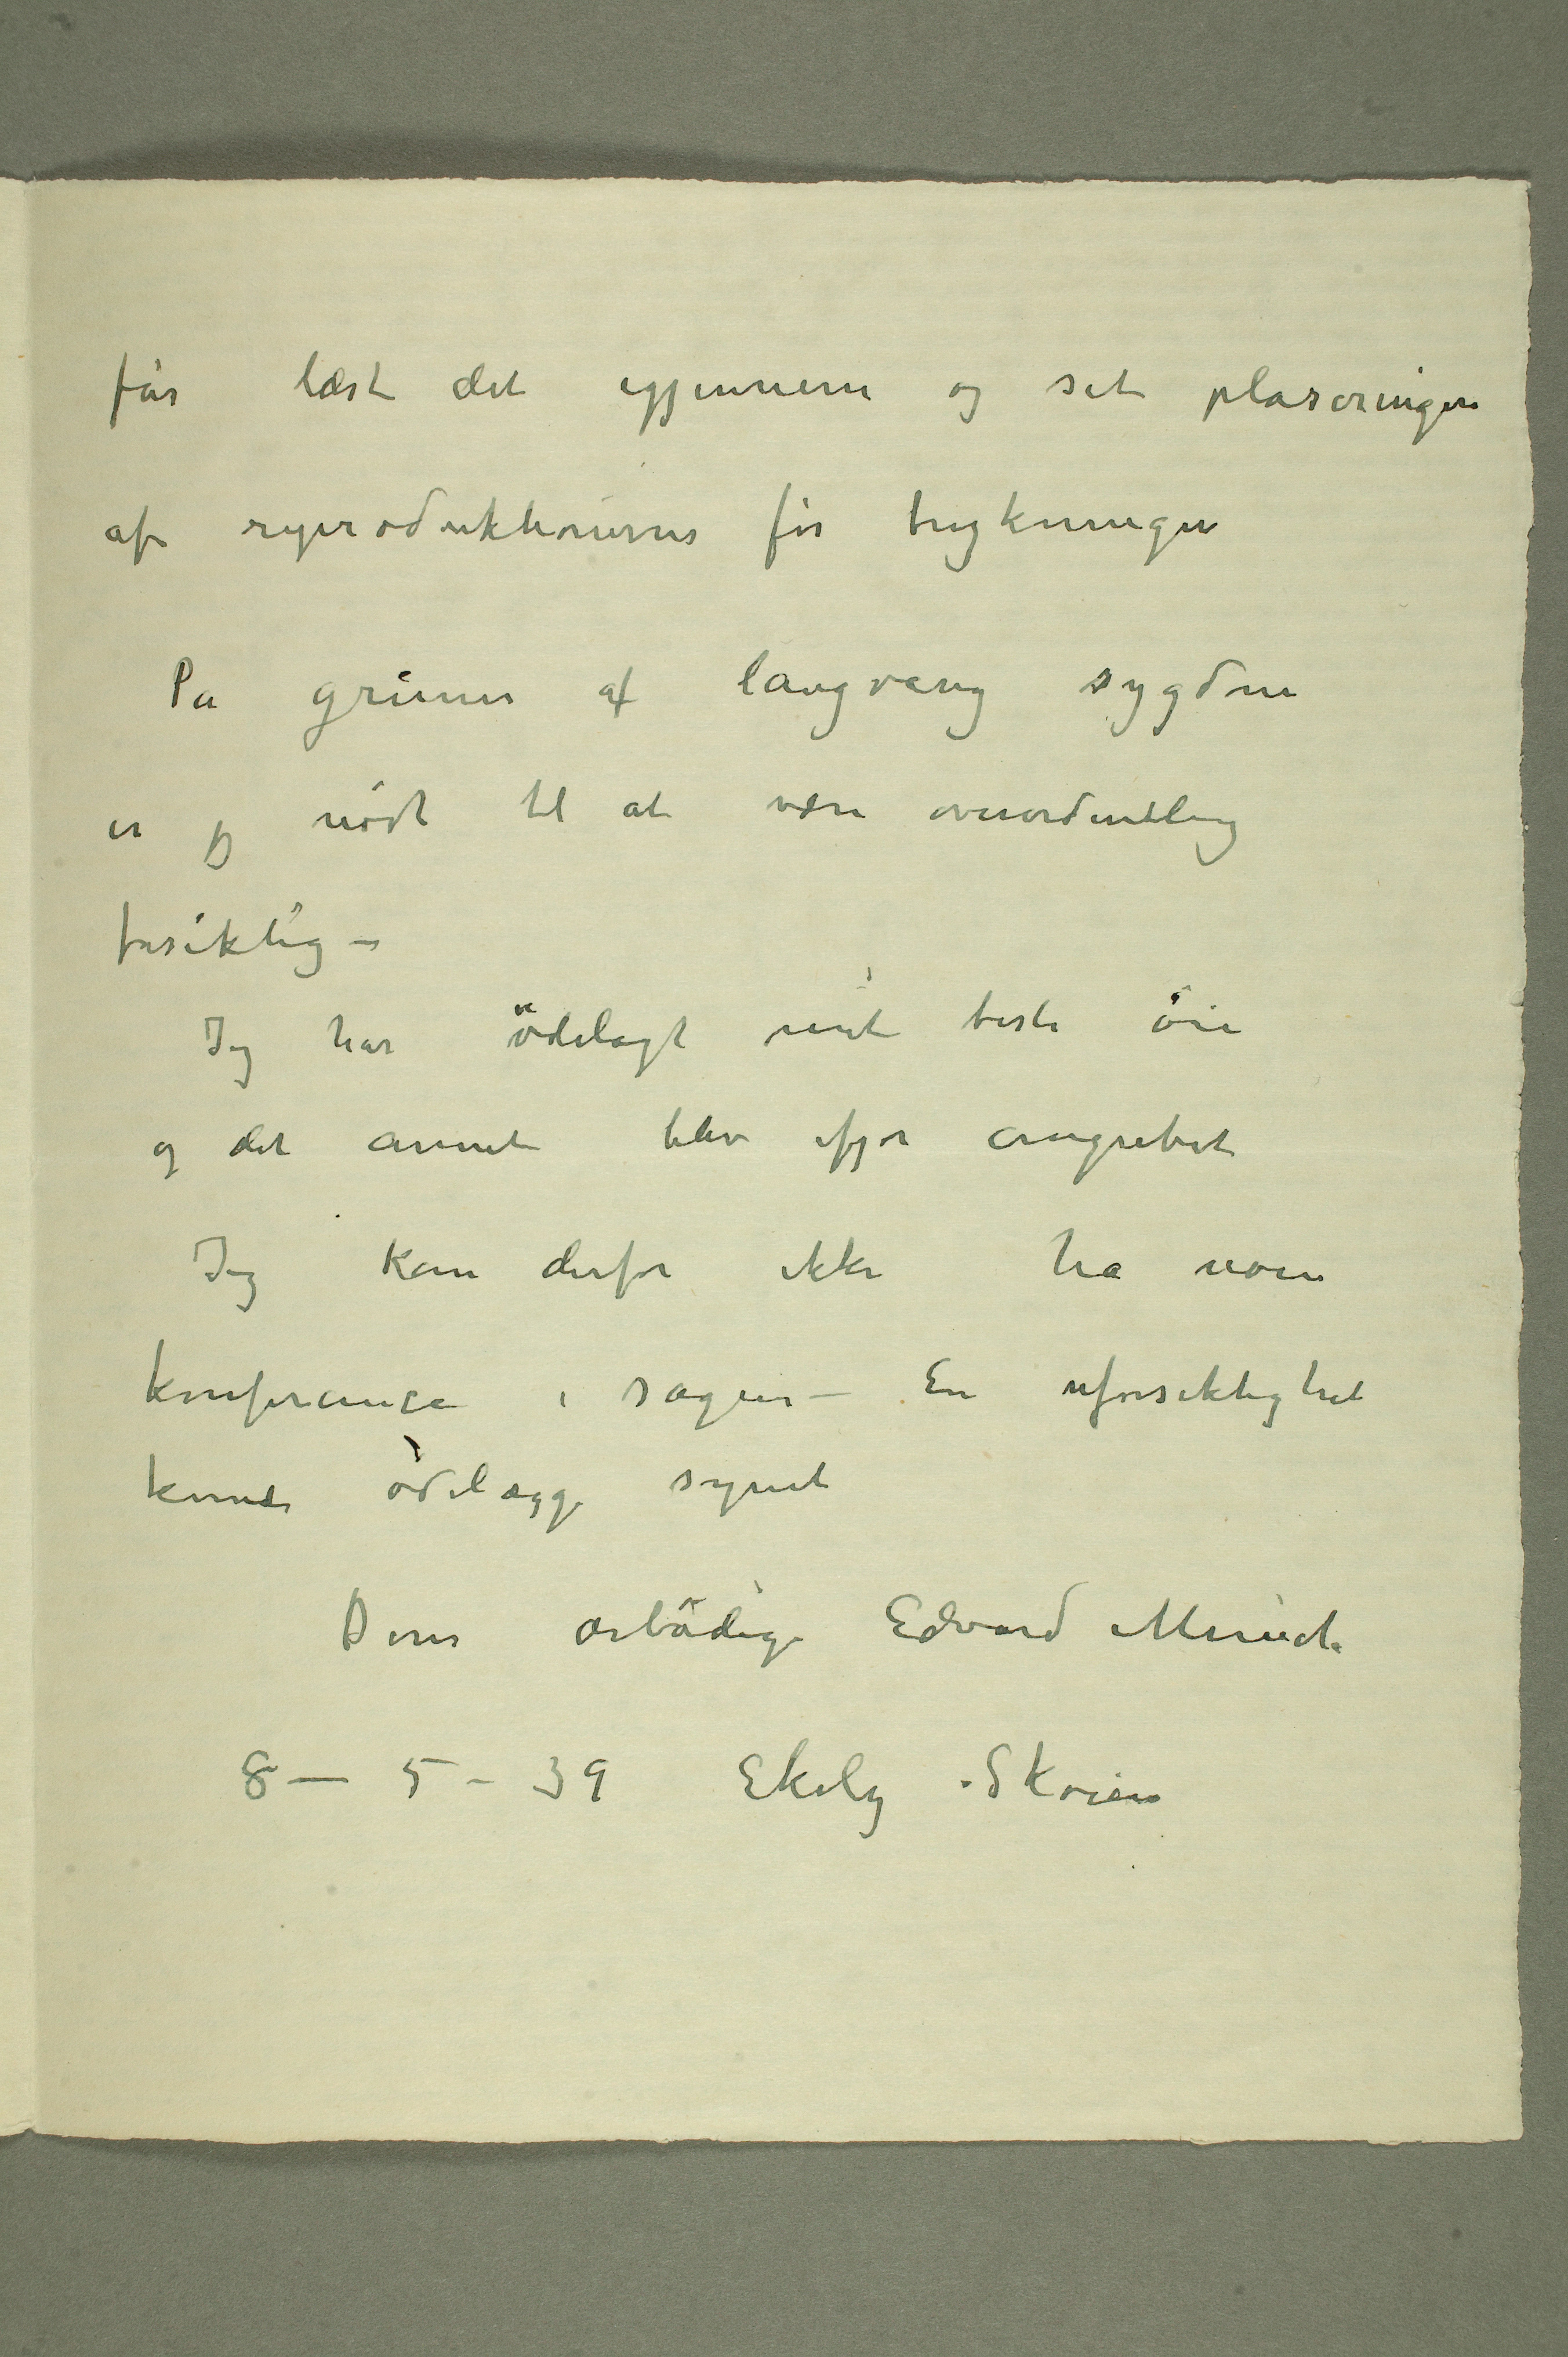 får læst det igjennem og set plaseringen
af reproduktionerne før trykningen
På grunn af langvarig sygdom
er jeg nödt til at være overordentlig
forsiktig –
Jeg har ödelagt mit beste öie
og det annet blev ifjor angrebet
Jeg kan derfor ikke ha noen
konferance i sagen – En uforsiktighet
kunde ödelægge synet
Deres ærbödige Edvard Munch
8 – 5 – 39 Ekely Skøien